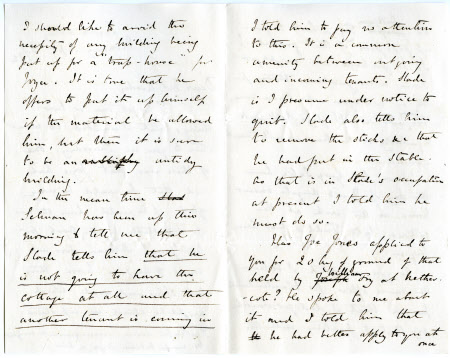 I should like to avoid the
necessity of any building being
put up for a "trap-house" for
Joyce. It is true that he
offers to put it up himself
if the material be allowed
him, but then it is sure
to be an untidy
building.
In the mean time
has been up this
morning to tell me that
Slade tells him that he
is not going to have the
cottage at all and that
another tenant is coming in
I told him to pay no attention
to this. It is a common
amenity between outgoing
and incoming tenants. Slade
is I presume under notice to
quit. Slade also tells him
to remove the sticks &c that
he had put in the stable.
As that is in Slade's occupation
at present I told him he
must do so.
Has Joe Jones applied to
you for 20 of ground of that
held by Joseph William at
He spoke to me about
it and I told him that
he had better apply to you at
once